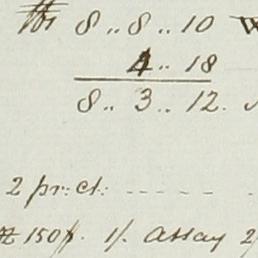 8 „ 8 „ 10
4 „ 18
8 „ 3 „ 12.
2 pr: ct: - - - -
150 1/. Assay 2/